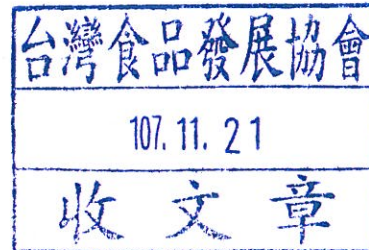 台灣食品發展協會
107.11.21
收文章